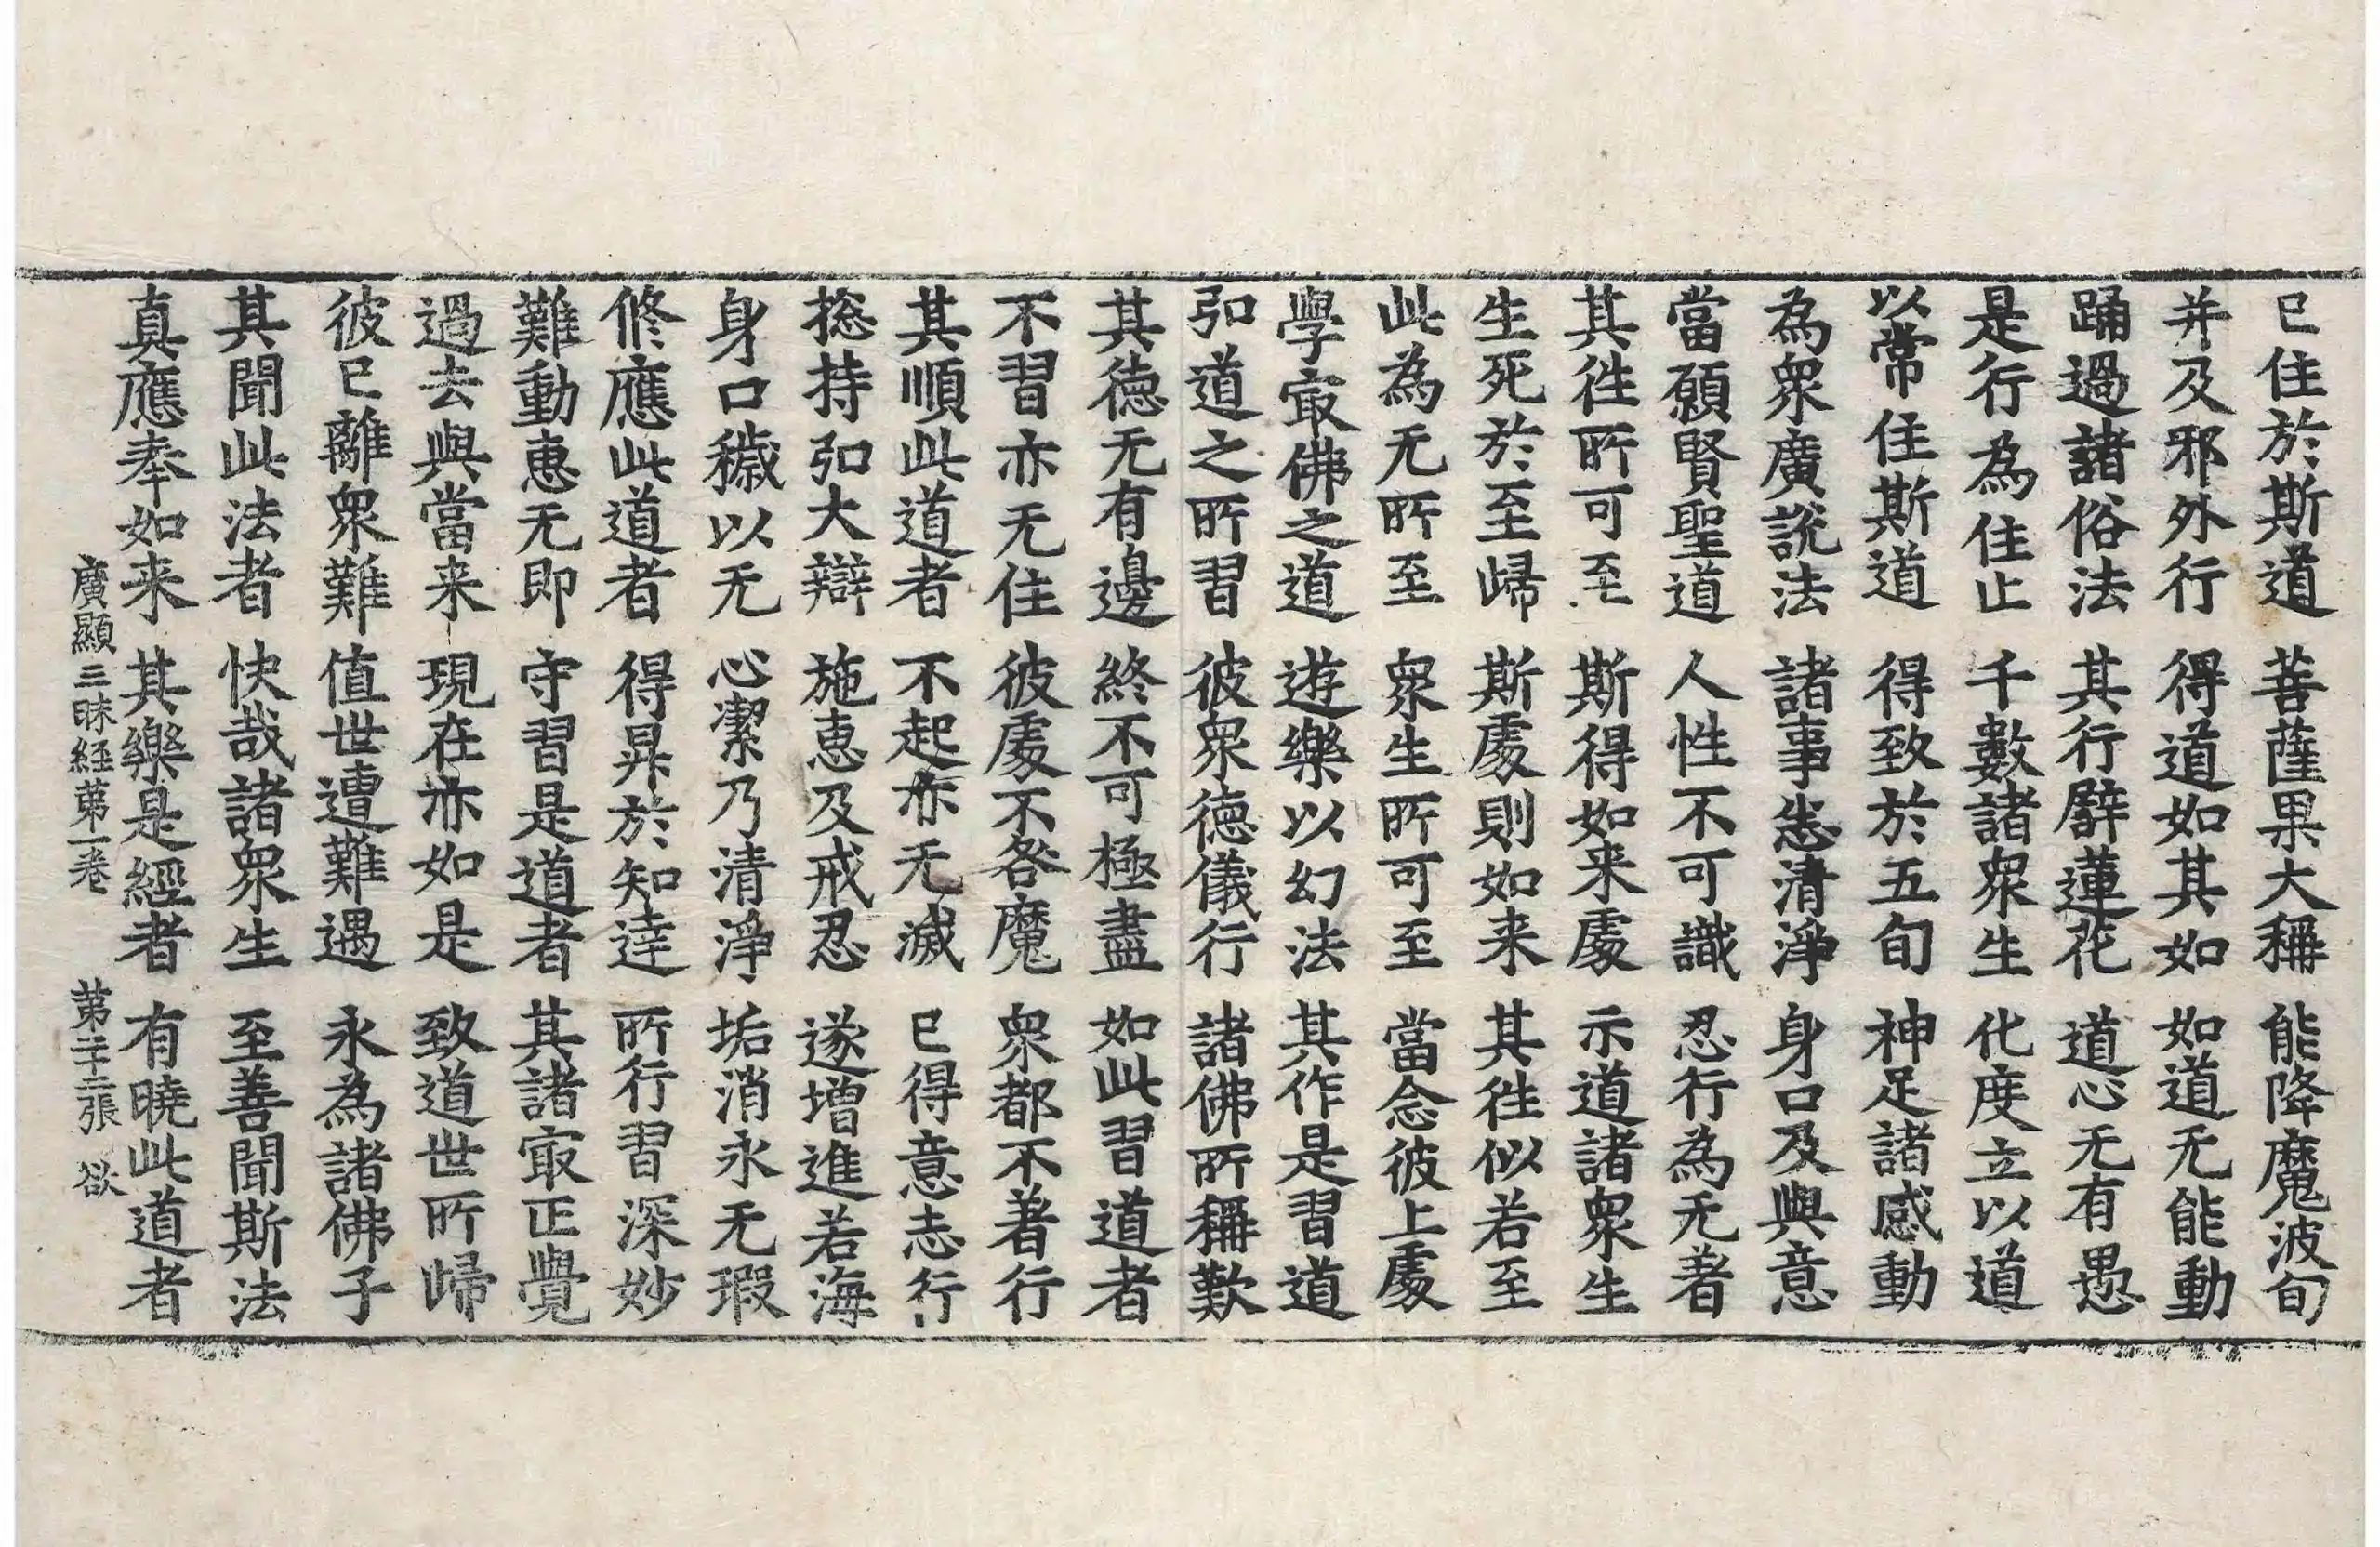 已住於斯道 菩薩果大稱 能降魔波旬
并及邪外行 得道如其如 如道无能動
踊過諸俗法 其行辟蓮花 道心无有愚
是行為住止 千數諸衆生 化度立以道
以常住斯道 得致於五旬 神足諸感動
為衆廣説法 諸事悉清淨 身口及與意
當願賢聖道 人性不可識 忍行為无著
其徃所可至 斯得如来處 示道諸衆生
生死於至歸 斯處則如来 其徃似若至
此為无所至 衆生所可至 當念彼上處
學㝡佛之道 遊樂以幻法 其作是習道
弘道之所習 彼衆德儀行 諸佛所稱歎
其德无有邊 終不可極盡 如此習道者
不習亦无住 彼處不咎魔 衆都不著行
其順此道者 不起亦无滅 已得意志行
捴持弘大辯 施恵及戒忍 遂增進若海
身口穢以无 心潔乃清淨 垢消永无瑕
修應此道者 得昇於知達 所行習深妙
難動恵无即 守習是道者 其諸㝡正覺
過去與當来 現在亦如是 致道世所歸
彼已離衆難 值世遭難遇 永為諸佛子
其聞此法者 快哉諸衆生 至善聞斯法
真應奉如来 其樂是經者 有曉此道者
廣顯三昧経苐一卷 苐二十二張 欲